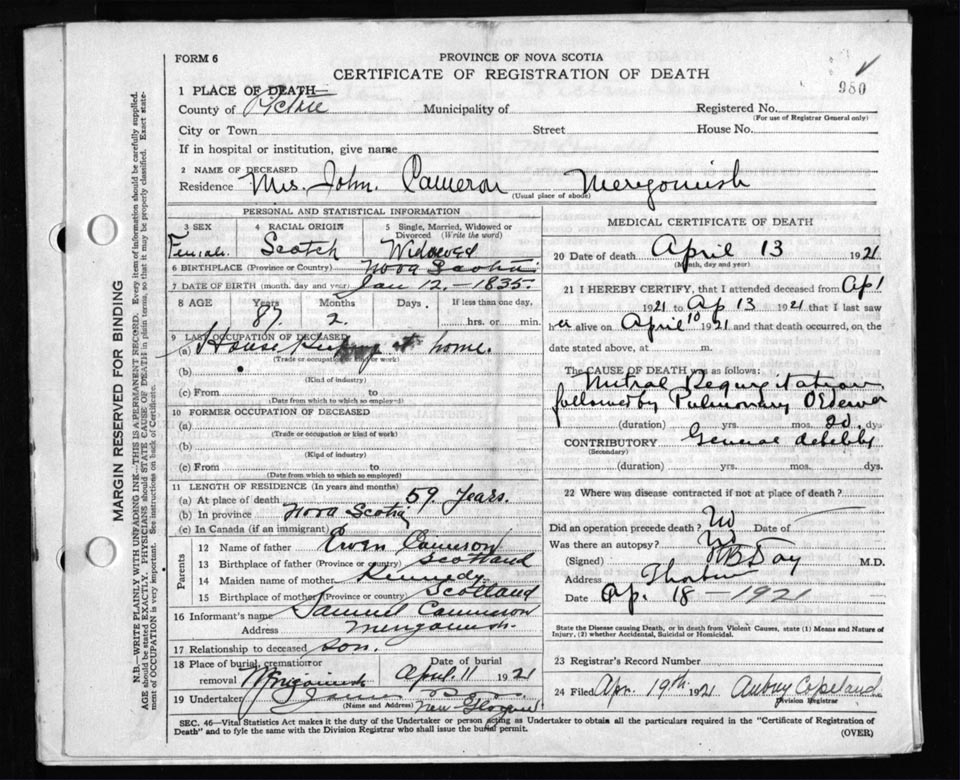 FORM 6
PROVINCE OF NOVA SCOTIA
CERTIFICATE OF REGISTRATION OF DEATH
980
1 PLACE OF DEATH—
County of Pictou Municipality of Registered No.
(For use of Registrar General only)
City or Town Street House No.
If in hospital or institution, give name
2 NAME OF DECEASED
Residence Mrs. John. Cameron Merigomish
(Usual place of abode)
PERSONAL AND STATISTICAL INFORMATION
3 SEX 4 RACIAL ORIGIN 5 Single, Married, Widowed or Divorced (Write the word)
Female. Scotch Widowed
6 BIRTHPLACE (Province or Country) Nova Scotia
7 DATE OF BIRTH (month, day and year) Jan 12, - 1835.
8 AGE Years Months Days If less than one day,
87. 2. hrs. or min.
9 LAST OCCUPATION OF DECEASED
(a) House Keeping at home.
(Trade or occupation or kind of work)
(b)
(Kind of industry)
(c) From to
(Date from which to which so employed)
10 FORMER OCCUPATION OF DECEASED
(a)
(Trade or occupation or kind of work)
(b)
(Kind of industry)
(c) From to
(Date from which to which so employed)
11 LENGTH OF RESIDENCE (In years and months)
(a) At place of death 59 Years.
(b) In province Nova Scotia
(c) In Canada (if an immigrant)
Parents
12 Name of father Ewen Cameron
13 Birthplace of father (Province or country) Scotland
14 Maiden name of mother Kennedy
15 Birthplace of mother (Province or country) Scotland
16 Informant's name Samuel Cameron
Address Merigomish.
17 Relationship to deceased Son.
18 Place of burial, cremation or removal Merigomish Date of burial April 11 1921
19 Undertaker James New Glasgow
(Name and Address)
MEDICAL CERTIFICATE OF DEATH
20 Date of death April 13 1921
(Month, day and year)
21 I HEREBY CERTIFY, that I attended deceased from Ap 1
1921 to Ap 13 1921 that I last saw
her alive on April 10 1921 and that death occurred, on the
date stated above, at m.
The CAUSE OF DEATH was as follows:
Mitral Regurgitation
followed by Pulmonary OEdema
(duration) yrs. mos. 20 dys.
CONTRIBUTORY General debility
(Secondary)
(duration) yrs. mos. dys.
22 Where was disease contracted if not at place of death?
Did an operation precede death? No Date of
Was there an autopsy? No
(Signed) M.D.
Address Thorburn
Date Ap. 18 - 1921
State the Disease causing Death, or in death from Violent Causes, state (1) Means and Nature of
Injury, (2) whether Accidental, Suicidal or Homicidal.
23 Registrar's Record Number
24 Filed Apr. 19th 1921 Copeland
Division Registrar
SEC. 46—Vital Statistics Act makes it the duty of the Undertaker or person acting as Undertaker to obtain all the particulars required in the "Certificate of Registration of
Death" and to fyle the same with the Division Registrar who shall issue the burial permit.
(OVER)
MARGIN RESERVED FOR BINDING
N.B.—WRITE PLAINLY WITH UNFADING INK—THIS IS A PERMANENT RECORD. Every item of information should be carefully supplied.
AGE should be stated EXACTLY. PHYSICIANS should STATE CAUSE OF DEATH in plain terms, so that it may be properly classified. Exact state-
ment of OCCUPATION is very important. See instructions on back of Certificate.